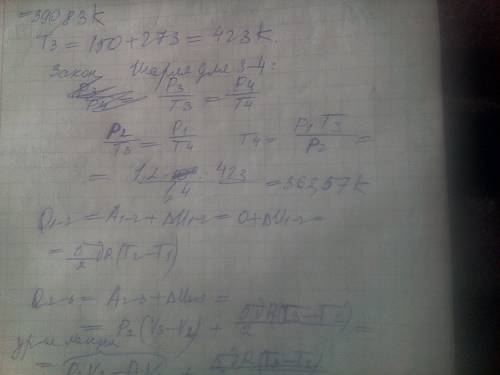 =390,83K
T3 = 150+273 = 423K.
Закон Шарля для 3-4:
P3/T3 = P4/T4
P2/T3 = P1/T4   T4 = P1 T3/P2 =
= 1,2 · 423/1,4 = 362,57K
Q1-2 = A1-2 + ΔU1-2 = 0 + ΔU1-2 =
= 5/2 νR(T2-T1)
Q2-3 = A2-3 + ΔU2-3 =
= P2(V3-V2) + 5νR(T3-T2)/2 =